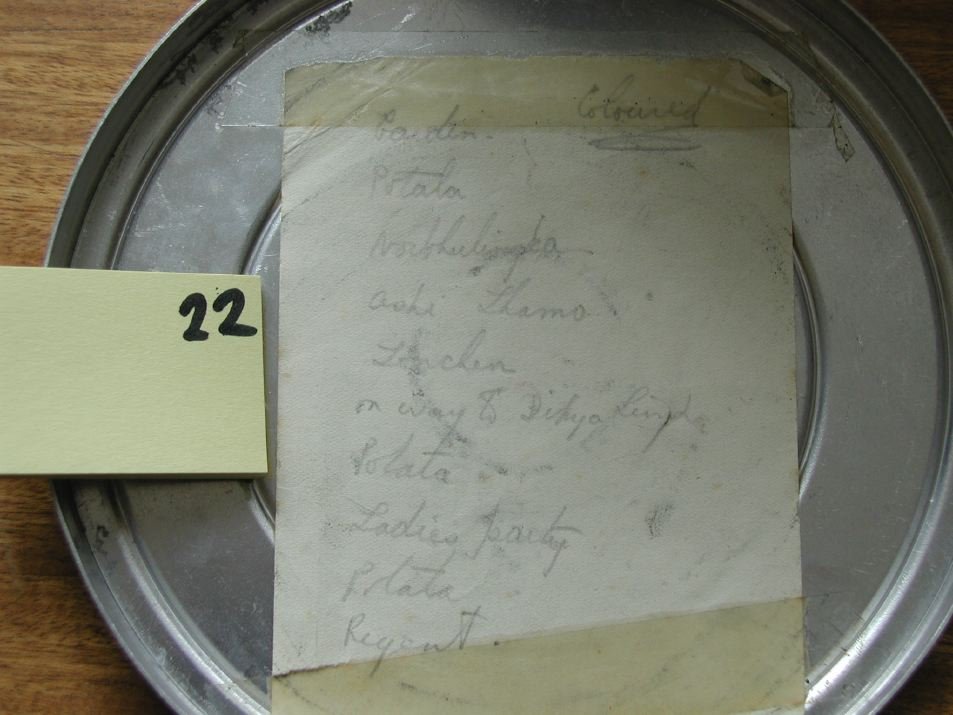 Coloured
Garden.
Potala
Norbhulingka
Ashi Lhamo.
on way to Dikya Lingka
Potala
Ladies party
Potala
Regent.
22